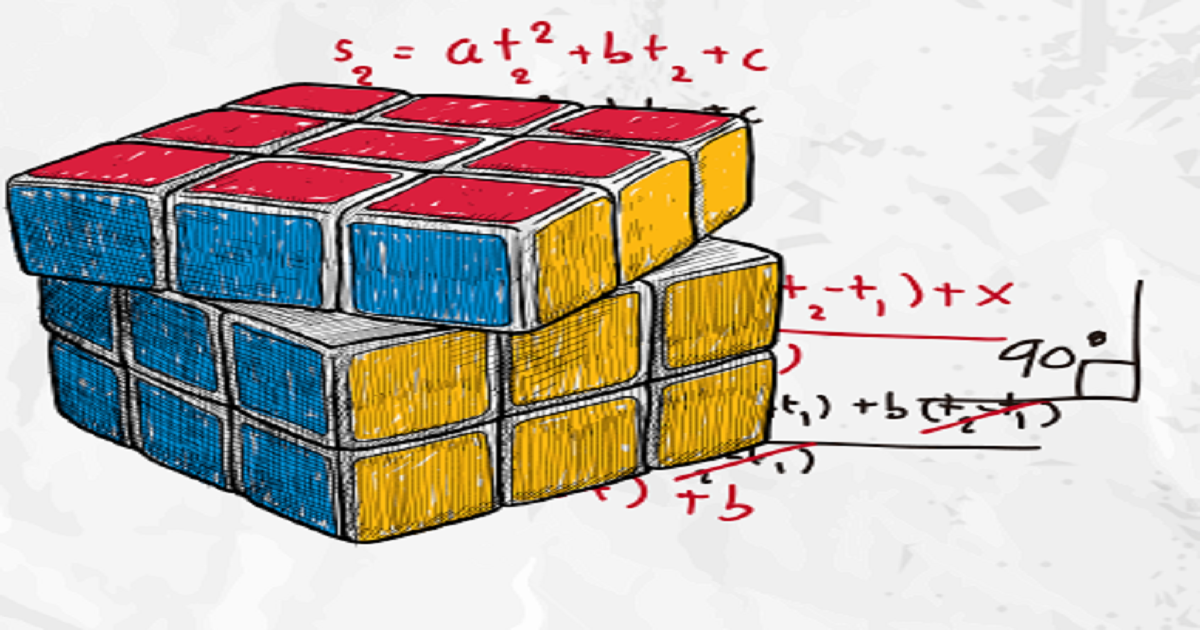 s₂ = at₂² + bt₂ + c
+ c
t₂ - t₁ ) + x
)
90°
t₁) + b (t₂ - t₁)
₂ - t₁)
t) + b